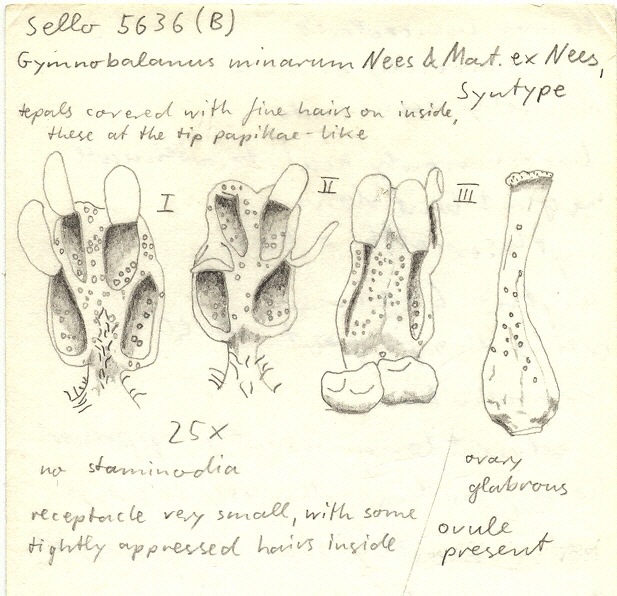 Sello 5636 (B)
Gymnobalanus minarum Nees & Mart. ex Nees,
Syntype
tepals covered with fine hairs on inside,
these at the tip papillae-like
I
II
III
25x
no staminodia
receptacle very small, with some
tightly appressed hairs inside
ovary
glabrous
ovule
present